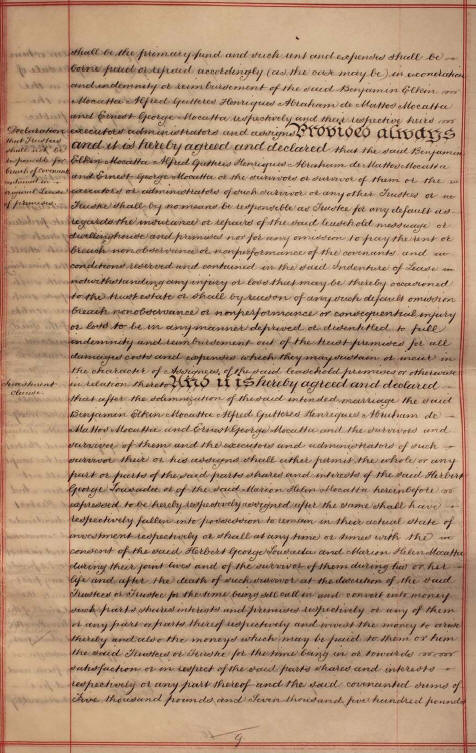 shall be the primary fund and such rent and expenses shall be
borne paid or repaid accordingly (as the case may be) in exoneration
and indemnity or reimbursement of the said Benjamin Elkin
Mocatta Alfred Gutteres Henriques Abraham de Mattos Mocatta
and Ernest George Mocatta respectively and their respective heirs
executors administrators and assigns Provided always
and it is hereby agreed and declared that the said Benjamin
Elkin Mocatta Alfred Gutteres Henriques Abraham de Mattos Mocatta
and Ernest George Mocatta or the survivors or survivor of them or the
executors or administrators of such survivor or any other Trustees or
Trustee shall by no means be responsible as Trustee for any default as
regards the insurance or repairs of the said leasehold messuage or
dwellinghouse and premises nor for any omission to pay the rent or
breach nonobservance or nonperformance of the covenants and
conditions reserved and contained in the said Indenture of Lease
notwithstanding any injury or loss that may be thereby occasioned
to the trust estate or shall by reason of any such default omission
breach nonobservance or nonperformance or consequential injury
or loss to be in any manner deprived or disentitled to full
indemnity and reimbursement out of the trust premises for all
damages costs and expenses which they may sustain or incur in
the character of Assignees of the said leasehold premises or otherwise
in relation thereto And it is hereby agreed and declared
that after the solemnization of the said intended marriage the said
Benjamin Elkin Mocatta Alfred Gutteres Henriques Abraham de
Mattos Mocatta and Ernest George Mocatta and the survivors and
survivor of them and the executors and administrators of such
survivor their or his assigns shall either permit the whole or any
part or parts of the said parts shares and interests of the said Herbert
George Lousada and of the said Marion Helen Mocatta hereinbefore
expressed to be hereby respectively assigned after the same shall have
respectively fallen into possession to remain in their actual state of
investment respectively or shall at any time or times with the
consent of the said Herbert George Lousada and Marion Helen Mocatta
during their joint lives and of the survivor of them during his or her
life and after the death of such survivor at the discretion of the said
Trustees or Trustee for the time being sell call in and convert into money
such parts shares interests and premises respectively or any of them
or any part or parts thereof respectively and invest the money to arise
thereby and also the moneys which may be paid to them or him
the said Trustees or Trustee for the time being in or towards
satisfaction or in respect of the said parts shares and interests
respectively or any part thereof and the said covenanted sums of
Five thousand pounds and Seven thousand five hundred pounds
Declaration
that Trustees
shall not be
responsible for
breach of covenants
contained in
original Lease
of premises
Investment
clause
9